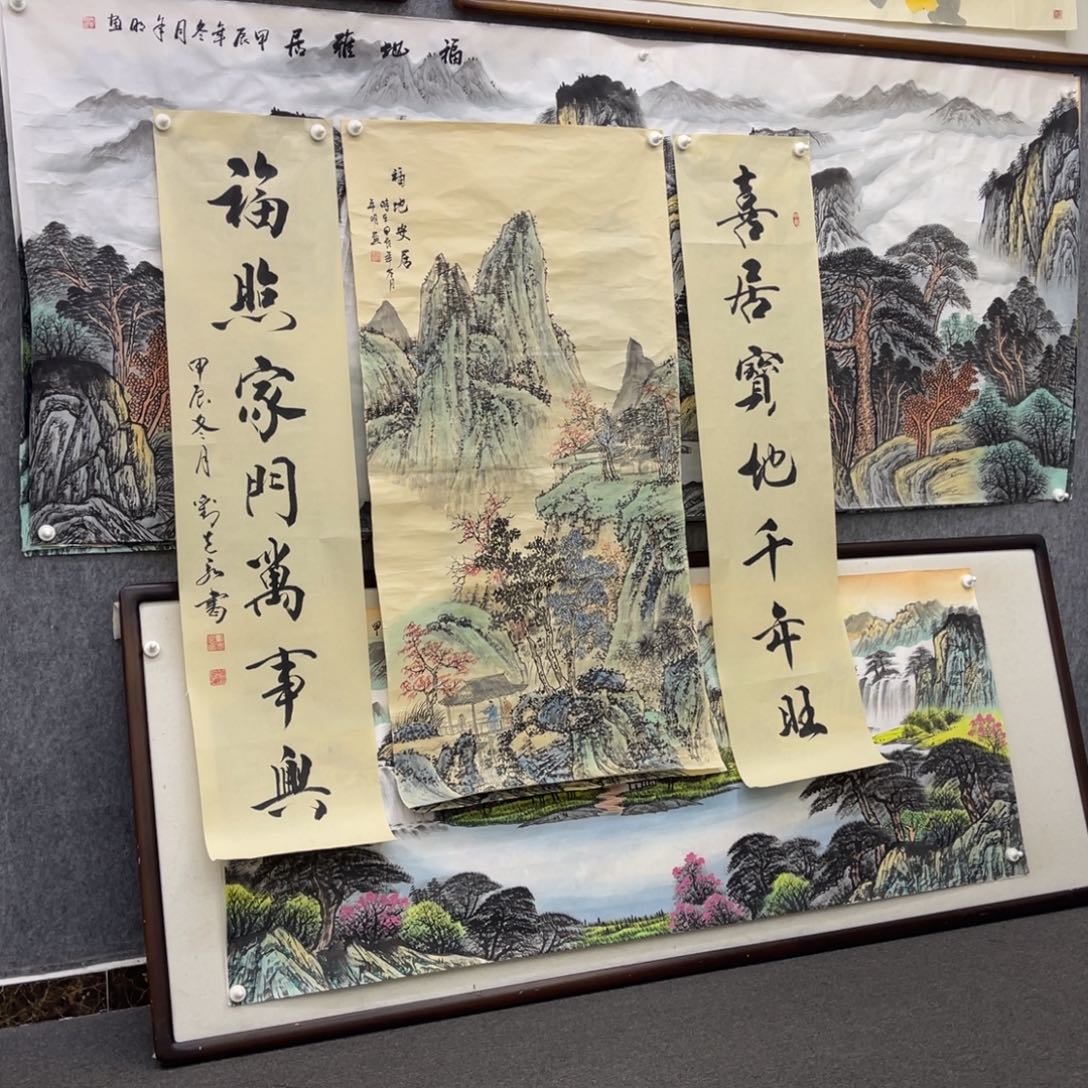 福地雅居
甲辰年冬月年明画
喜居寶地千年旺
福地安居
時在甲辰年冬月
年明画
福照家門萬事興
甲辰冬月劉
書
甲